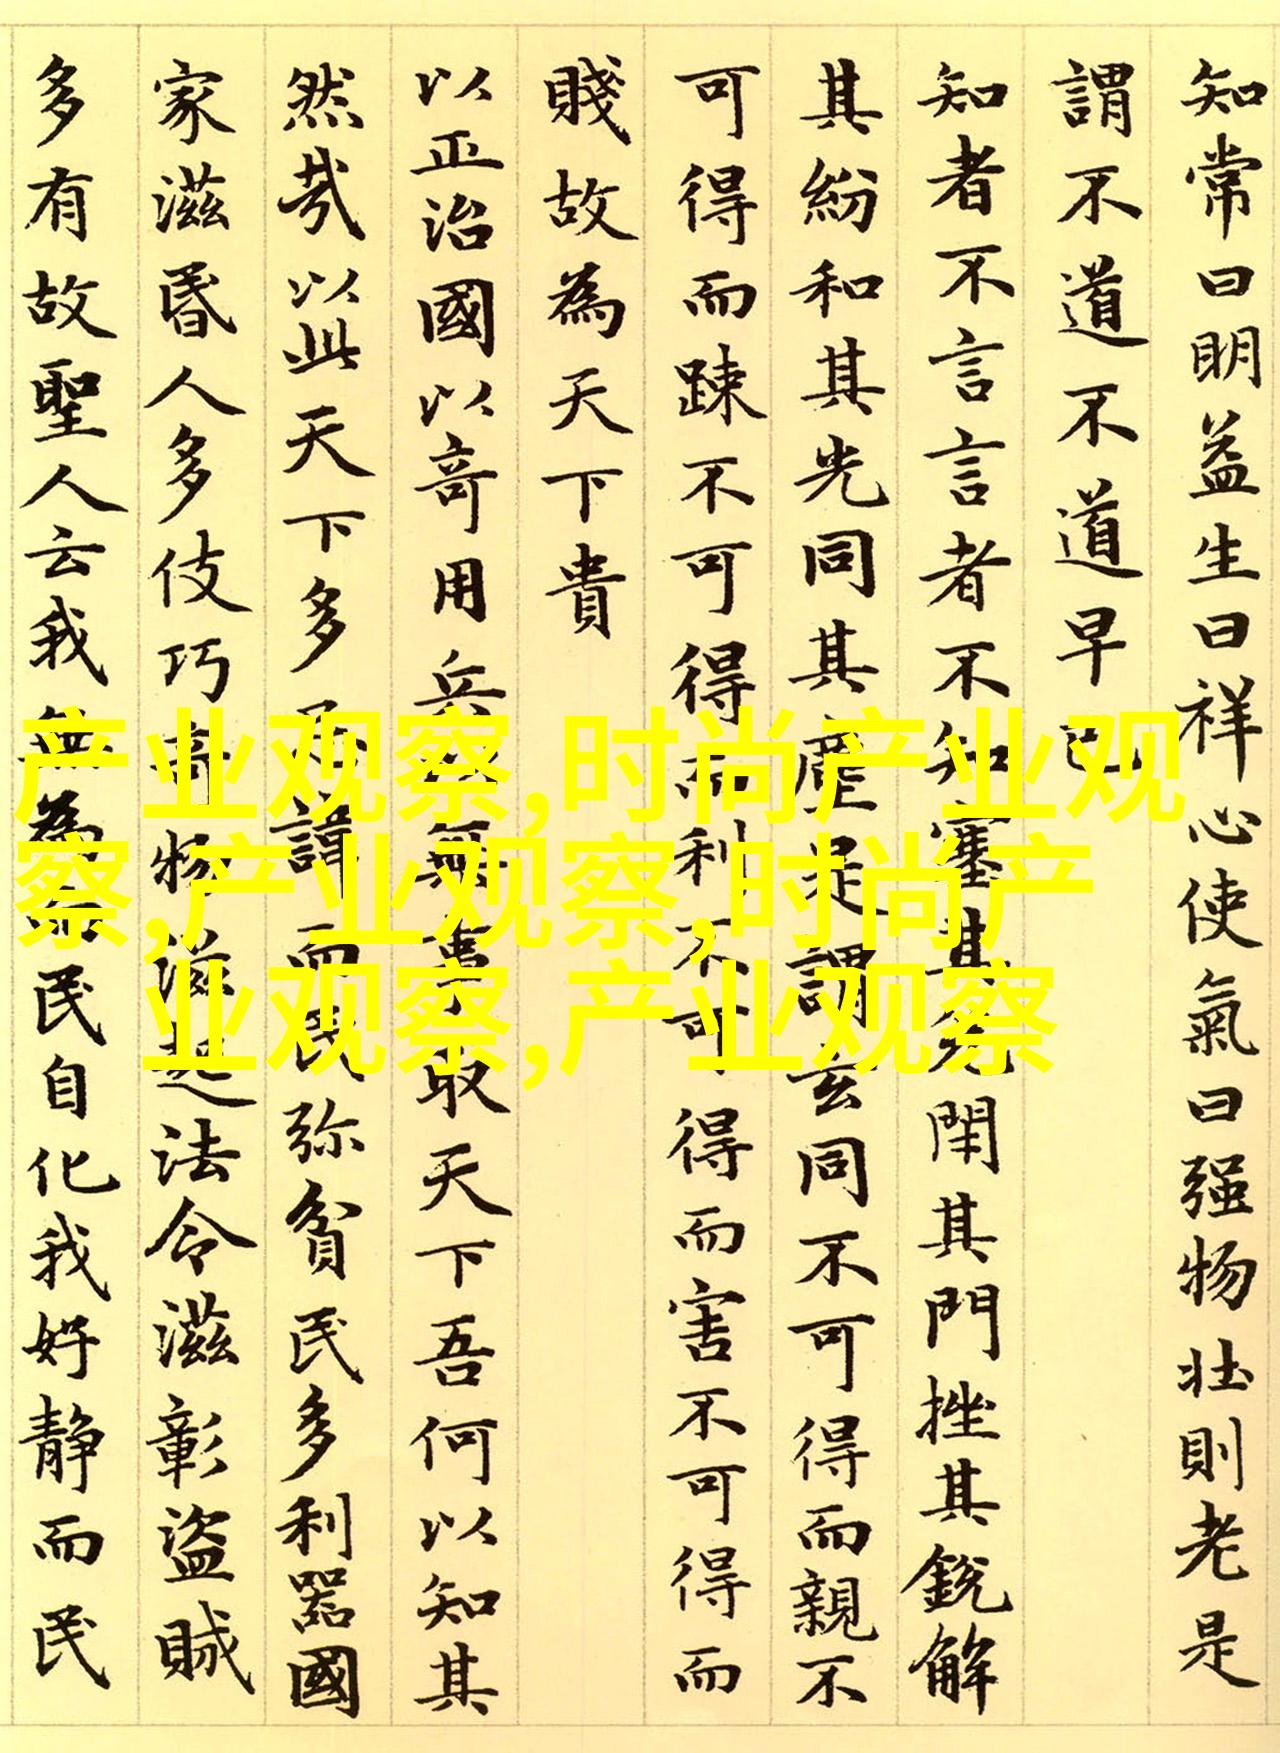 知常曰明益生曰祥心使氣曰强物壯則老是
謂不道不道早已
知者不言言者不知塞其兌閇其門挫其銳解
其紛和其光同其塵是謂玄同不可得而親不
可得而踈不可得而利不可得而害不可得而
賤故為天下貴
以正治國以奇用兵以無事取天下吾何以知其
然㢤以此天下多忌諱而民弥貧民多利器國
家滋昬人多伎巧奇物滋起法令滋彰盜賊
多有故聖人云我無為而民自化我好靜而民
产业观察,时尚产业观
察,产业观察,时尚产
业观察,产业观察